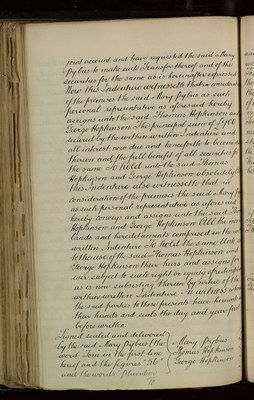 said account and have requested the said Mary
Pybus to make such Transfer thereof and of the
securities for the same as is hereinafter expressed
Now this Indenture witnesseth that in consideration
of the premises the said Mary Pybus as such
personal representative as aforesaid hereby
assigns unto the said Thomas Hopkinson and
George Hopkinson The principal sum of
secured by the within written Indenture and
all interest now due and henceforth to become
thereon and the full benefit of all securities for
the same To hold unto the said Thomas
Hopkinson and George Hopkinson absolutely
this Indenture also witnesseth that in
consideration of the premises the said Mary
as such personal representative as aforesaid
hereby conveys and assigns unto the said
Hopkinson and George Hopkinson All the
lands and hereditaments comprised in the
written Indenture To hold the same Unto
to the use of the said Thomas Hopkinson and
George Hopkinson their heirs and assigns for
ever subject to such right or equity of redemption
as is now subsisting therein by virtue of the
within written Indenture In witness
the said parties to these presents have hereunto
their hands and seals the day and year first
before written
Signed sealed and delivered
by the said Mary Pybus (the
word in the first line
hereof and the figures "56"
and the words
Mary Pybus
Thomas Hopkinson
George Hopkinson